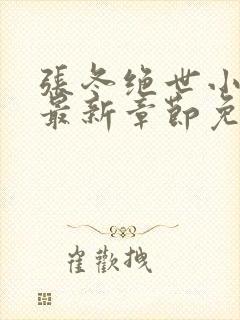 張冬绝世小
最新章節免
崔歡拽